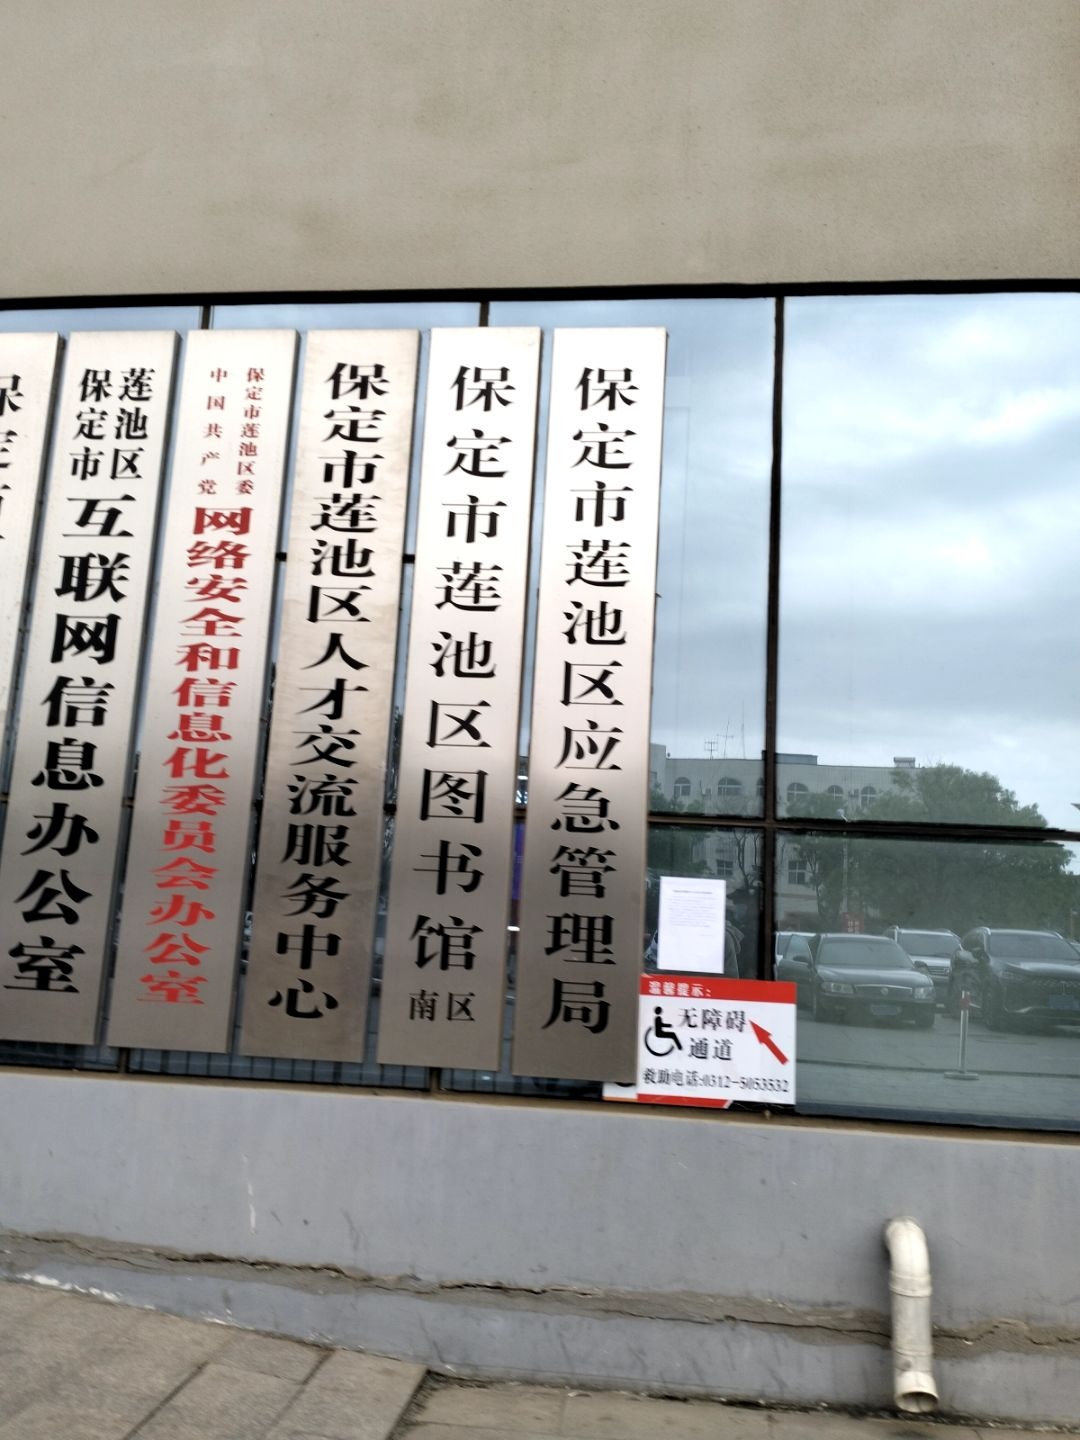 保定市莲池区互联网信息办公室
中国共产党保定市莲池区委网络安全和信息化委员会办公室
保定市莲池区人才交流服务中心
保定市莲池区图书馆
南区
保定市莲池区应急管理局
温馨提示：
无障碍
通道
救助电话:0312-5053532